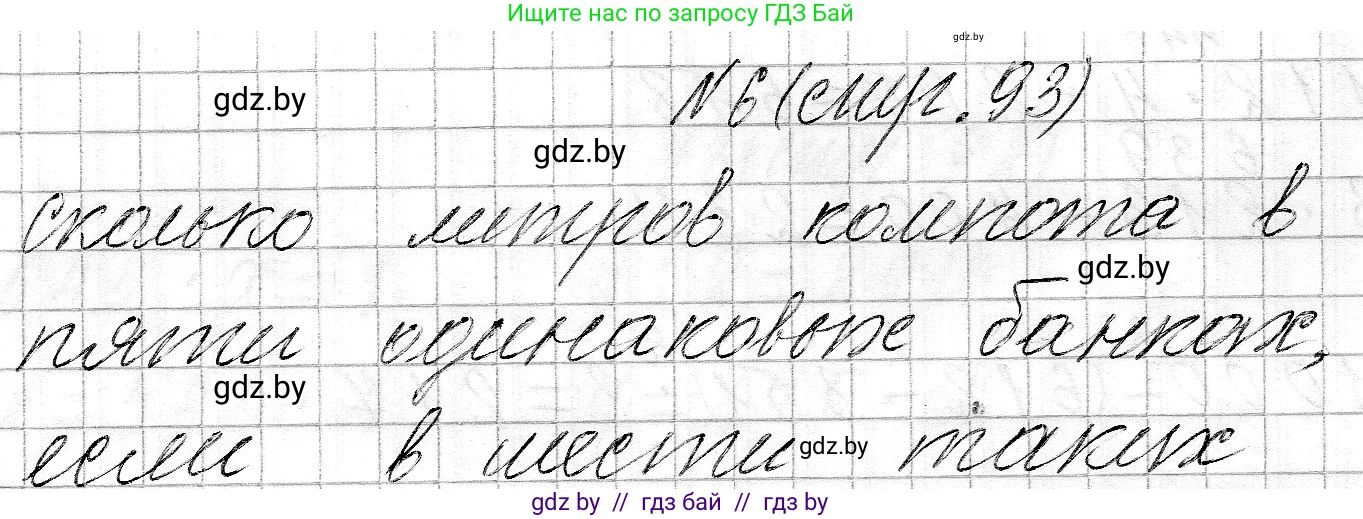 Ищите нас по запросу ГДЗ Бай
gdz.by
№6 (стр. 93)
gdz.by
gdz.by
сколько литров компота в
gdz.by
пяти одинаковых банках,
gdz.by
если в шести таких
gdz.by
gdz.by // гдз бай // гдз by